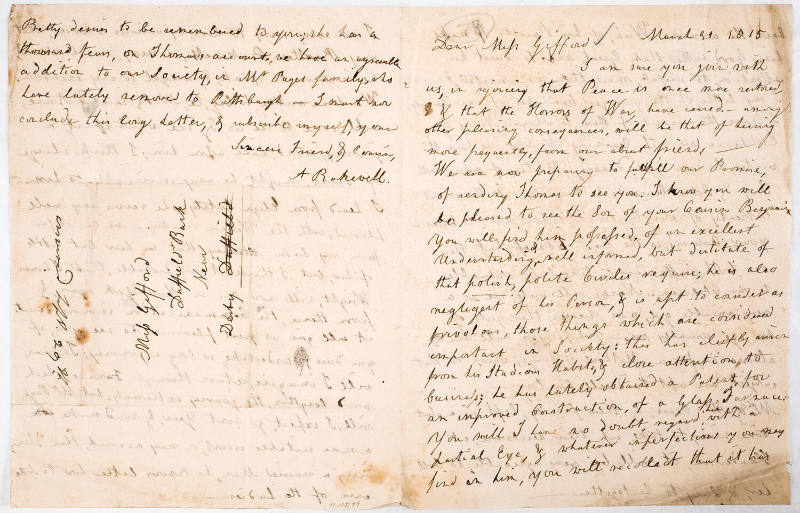 Betty desires to be remembered to you; she has a
thousand fears, on Thomas's account, we have an agreeable
addition to our Society, in Mr Pages family, who
have lately removed to Pittsburgh — I must now
conclude this long Letter, & subscribe myself, your
Sincere Friend, & Cousin,
A Bakewell.
Miss Gifford
Duffield Bank
Near
Derby Duffield
March 21 1815
Dear Miss Gifford
I am sure you join with
us, in rejoicing that Peace is once more restored,
& that the Horrors of War, have ceased — among
other pleasing consequences, will be that of hearing
more frequently, from our absent friends, —
We are now preparing to fulfill our Promise,
of sending Thomas to see you. I know you will
be pleased to see the Son of your Cousin Benjamin
You will find him possessed, of an excellent
Understanding, & well informed, but destitute of
that polish, polite Circles require; he is also
negligent of his Person, & is apt to consider as
frivolous, those things which are considered
important in Society: this has chiefly arisen
from his Studious Habits, & close attention, to
business; he has lately obtained a Patent, for
an improved Construction, of a Glass Furnace
You will I have no doubt, regard him with a
partial Eye, & whatever imperfections you may
find in him, you will recollect that it has